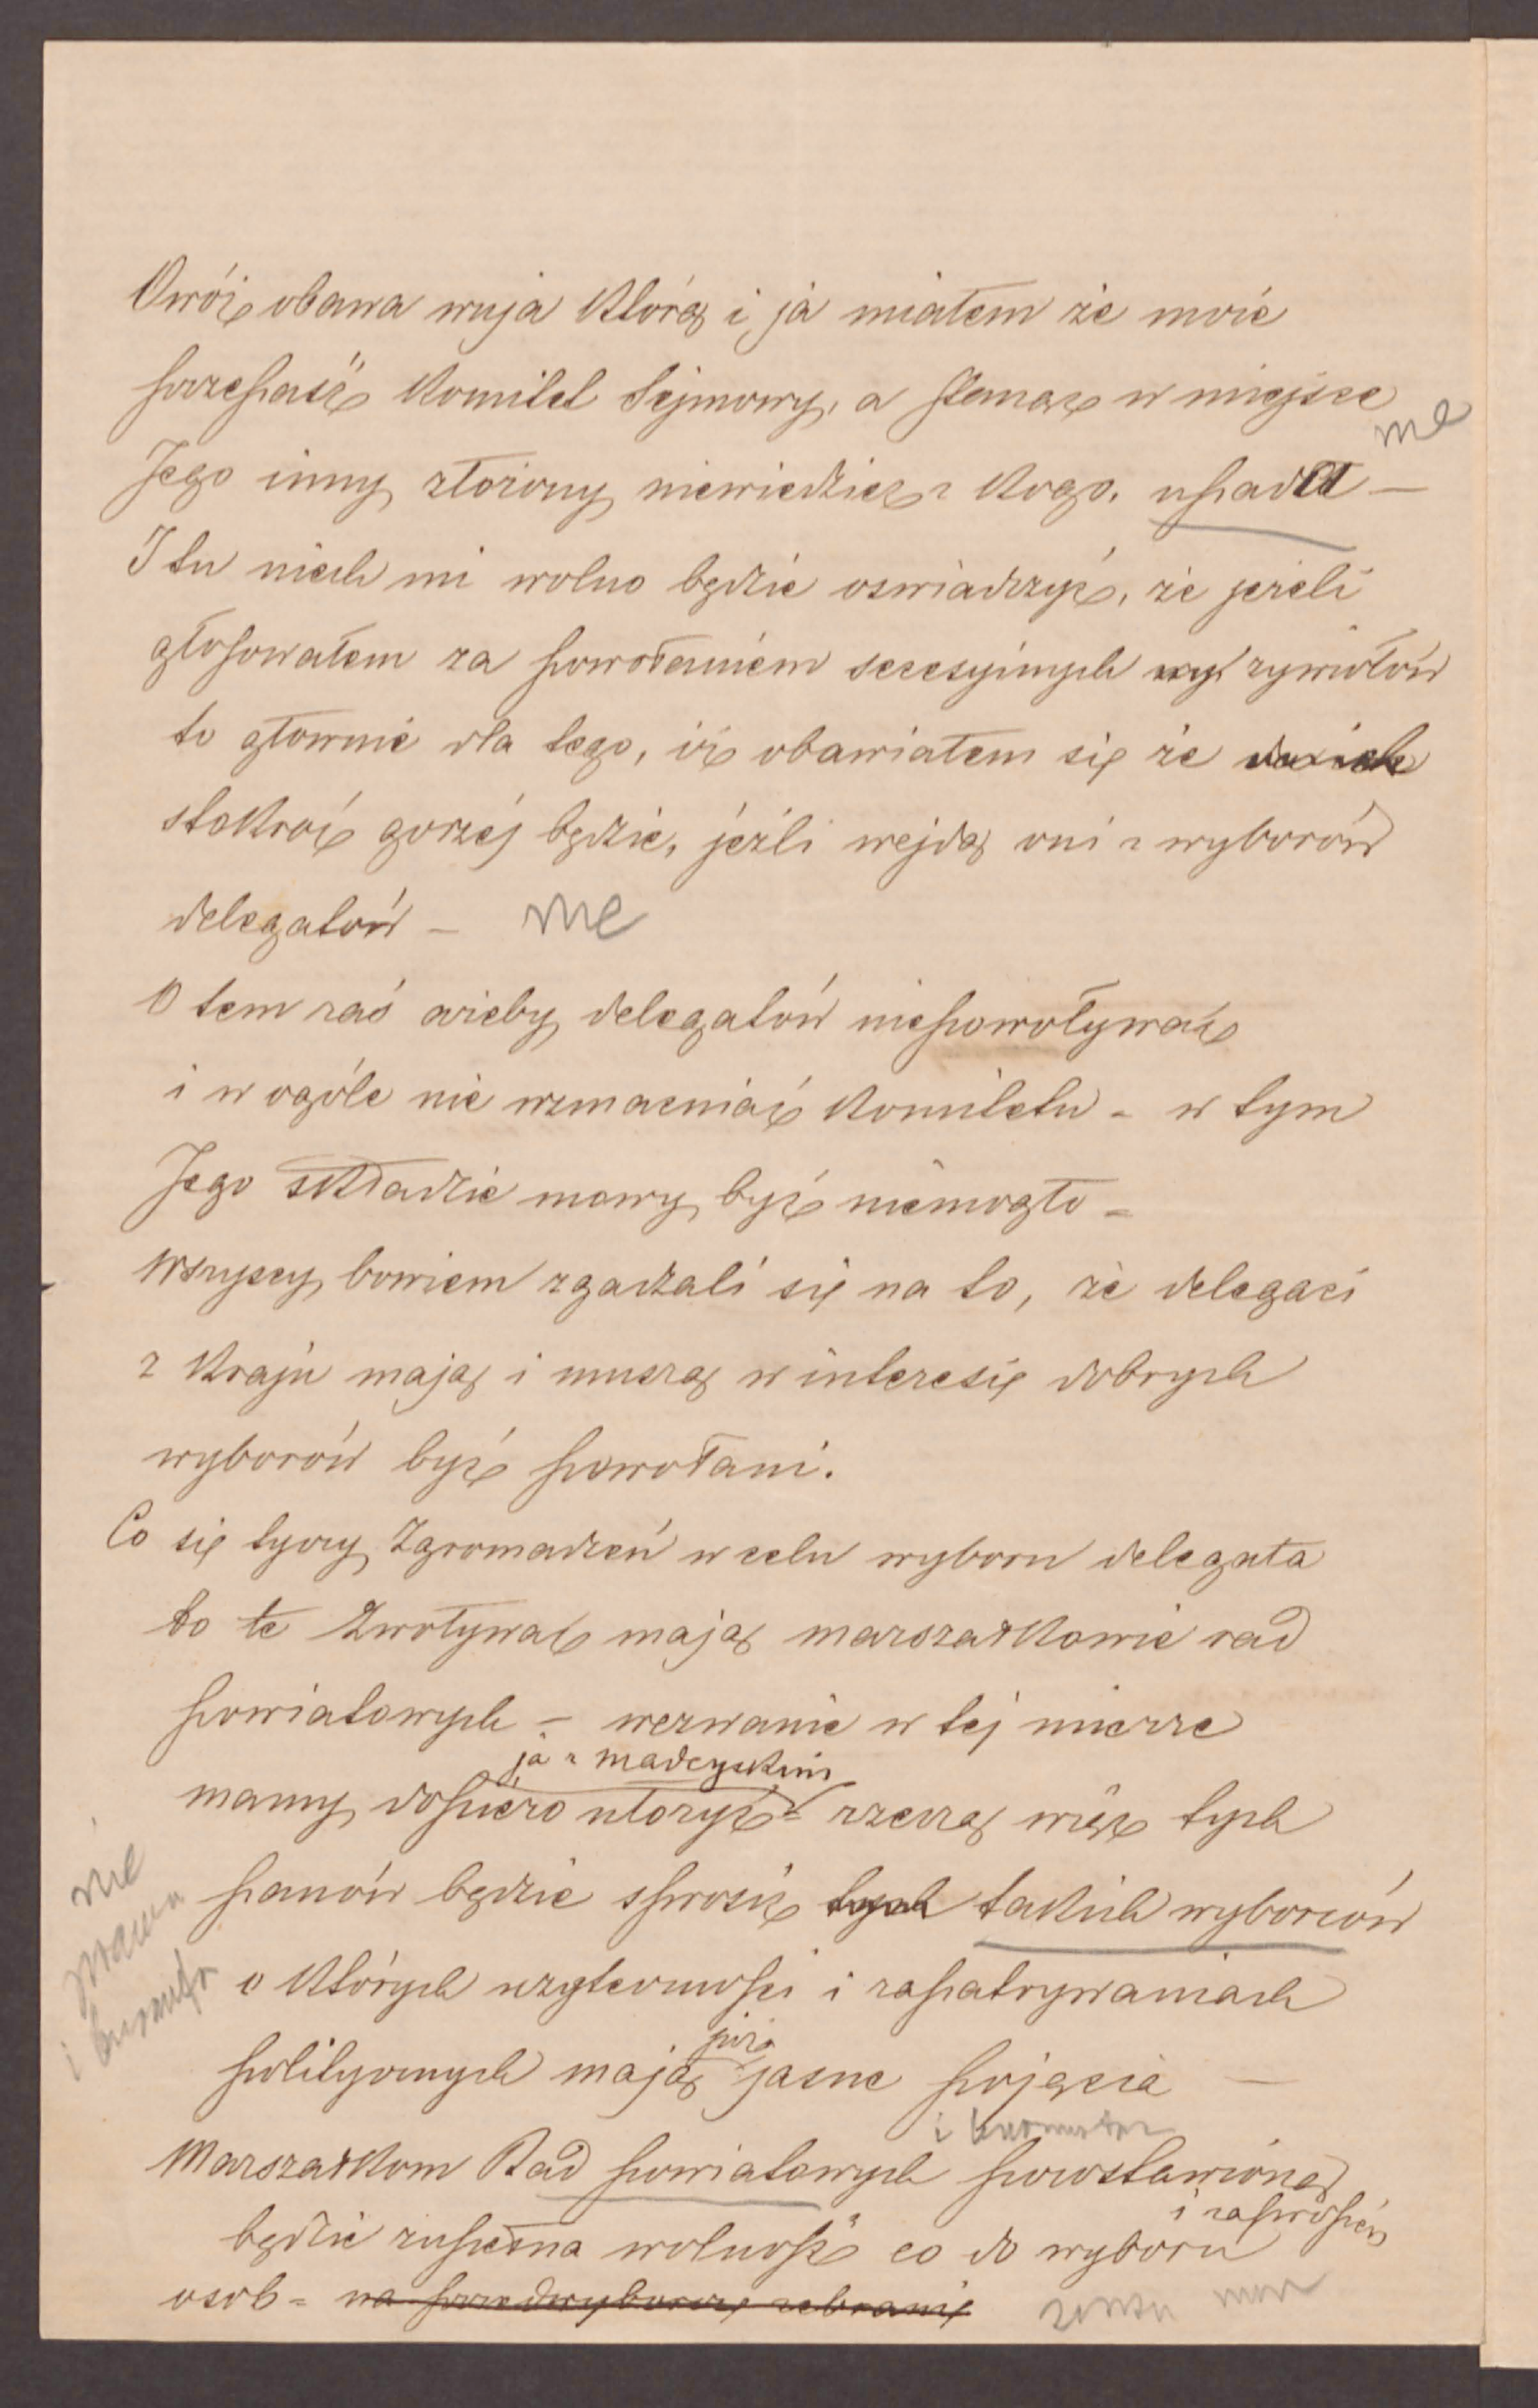 Owóż obawa wuja którą i ja miałem że może
przepaść Komitet Sejmowy, a stanąć w miejsce
nie
Jego inny złożony niewiedzieć z kogo. upadła —
I tu niech mi wolno będzie oswiadczyć, że jeżeli
głosowałem za powołaniem secesyjnych żywiołów
to głownie dla tego, iż obawiałem się że
stokroć gorzej będzie, jeżli wejdą oni z wyborów
delegatów — nie
O tem zaś ażeby delegatów niepowoływać
i w ogóle nie wzmacniać Komitetu - w tym
Jego składzie mowy być niemogło -
Wszyscy bowiem zgadzali się na to, że delegaci
z Kraju mają i muszą w interesie dobrych
wyborów być powołani.
Co się tyczy Zgromadzeń w celu wyboru delegata
to te zwoływać mają marszałkowie rad
powiatowych — wezwanie w tej mierze
ja z Madeyskim
mamy dopiéro ułożyć - rzeczą więc tych
nie
prawda
panów będzie sprosić tych takich wyborców
o których użyteczności i zapatrywaniach
już
politycznych mają jasne pojęcia —
i
Marszałkom Rad powiatowych pozostawioną
i zaproszeń
będzie zupełna wolność co do wyboru
osob - na przedwyborcze zebranie